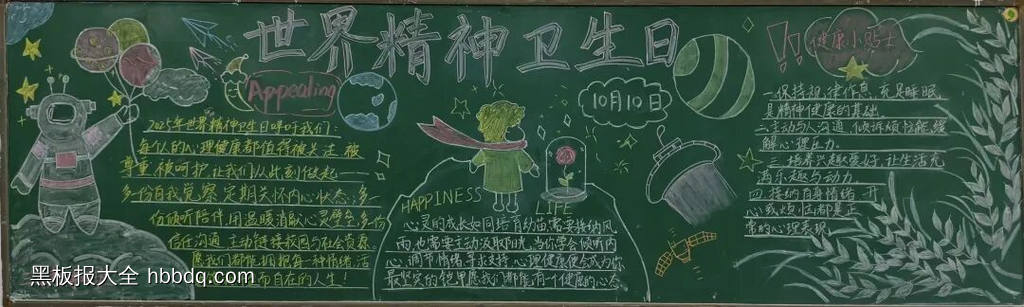 世界精神卫生日
Appealing
2025年世界精神卫生日呼吁我们:
每个人的心理健康都值得被关注、被
尊重、被呵护,让我们从此刻做起——
多份自我觉察,定期关怀内心状态;多一
份倾听陪伴,用温暖消融心灵壁垒;多份
信任沟通,主动链接校园与社会资源
愿我们都能拥抱每一种情绪,活
而自在的人生!
10月10日
HAPPINESS
LIFE
心灵的成长如同培育幼苗,需要接纳风
雨,也需要主动汲取阳光。当你学会倾听内
心、调节情绪、寻求支持,心理健康便会成为你
最坚实的铠甲。愿我们都能有一个健康的心态
健康小贴士
一、保持规律作息,充足睡眠
是精神健康的基础
二、主动与人沟通,倾诉烦恼能缓
解心理压力
三、培养兴趣爱好,让生活充
满乐趣与动力
四、接纳自身情绪,开
心或烦恼都是正
常的心理表现
黑板报大全 hbbdq.com